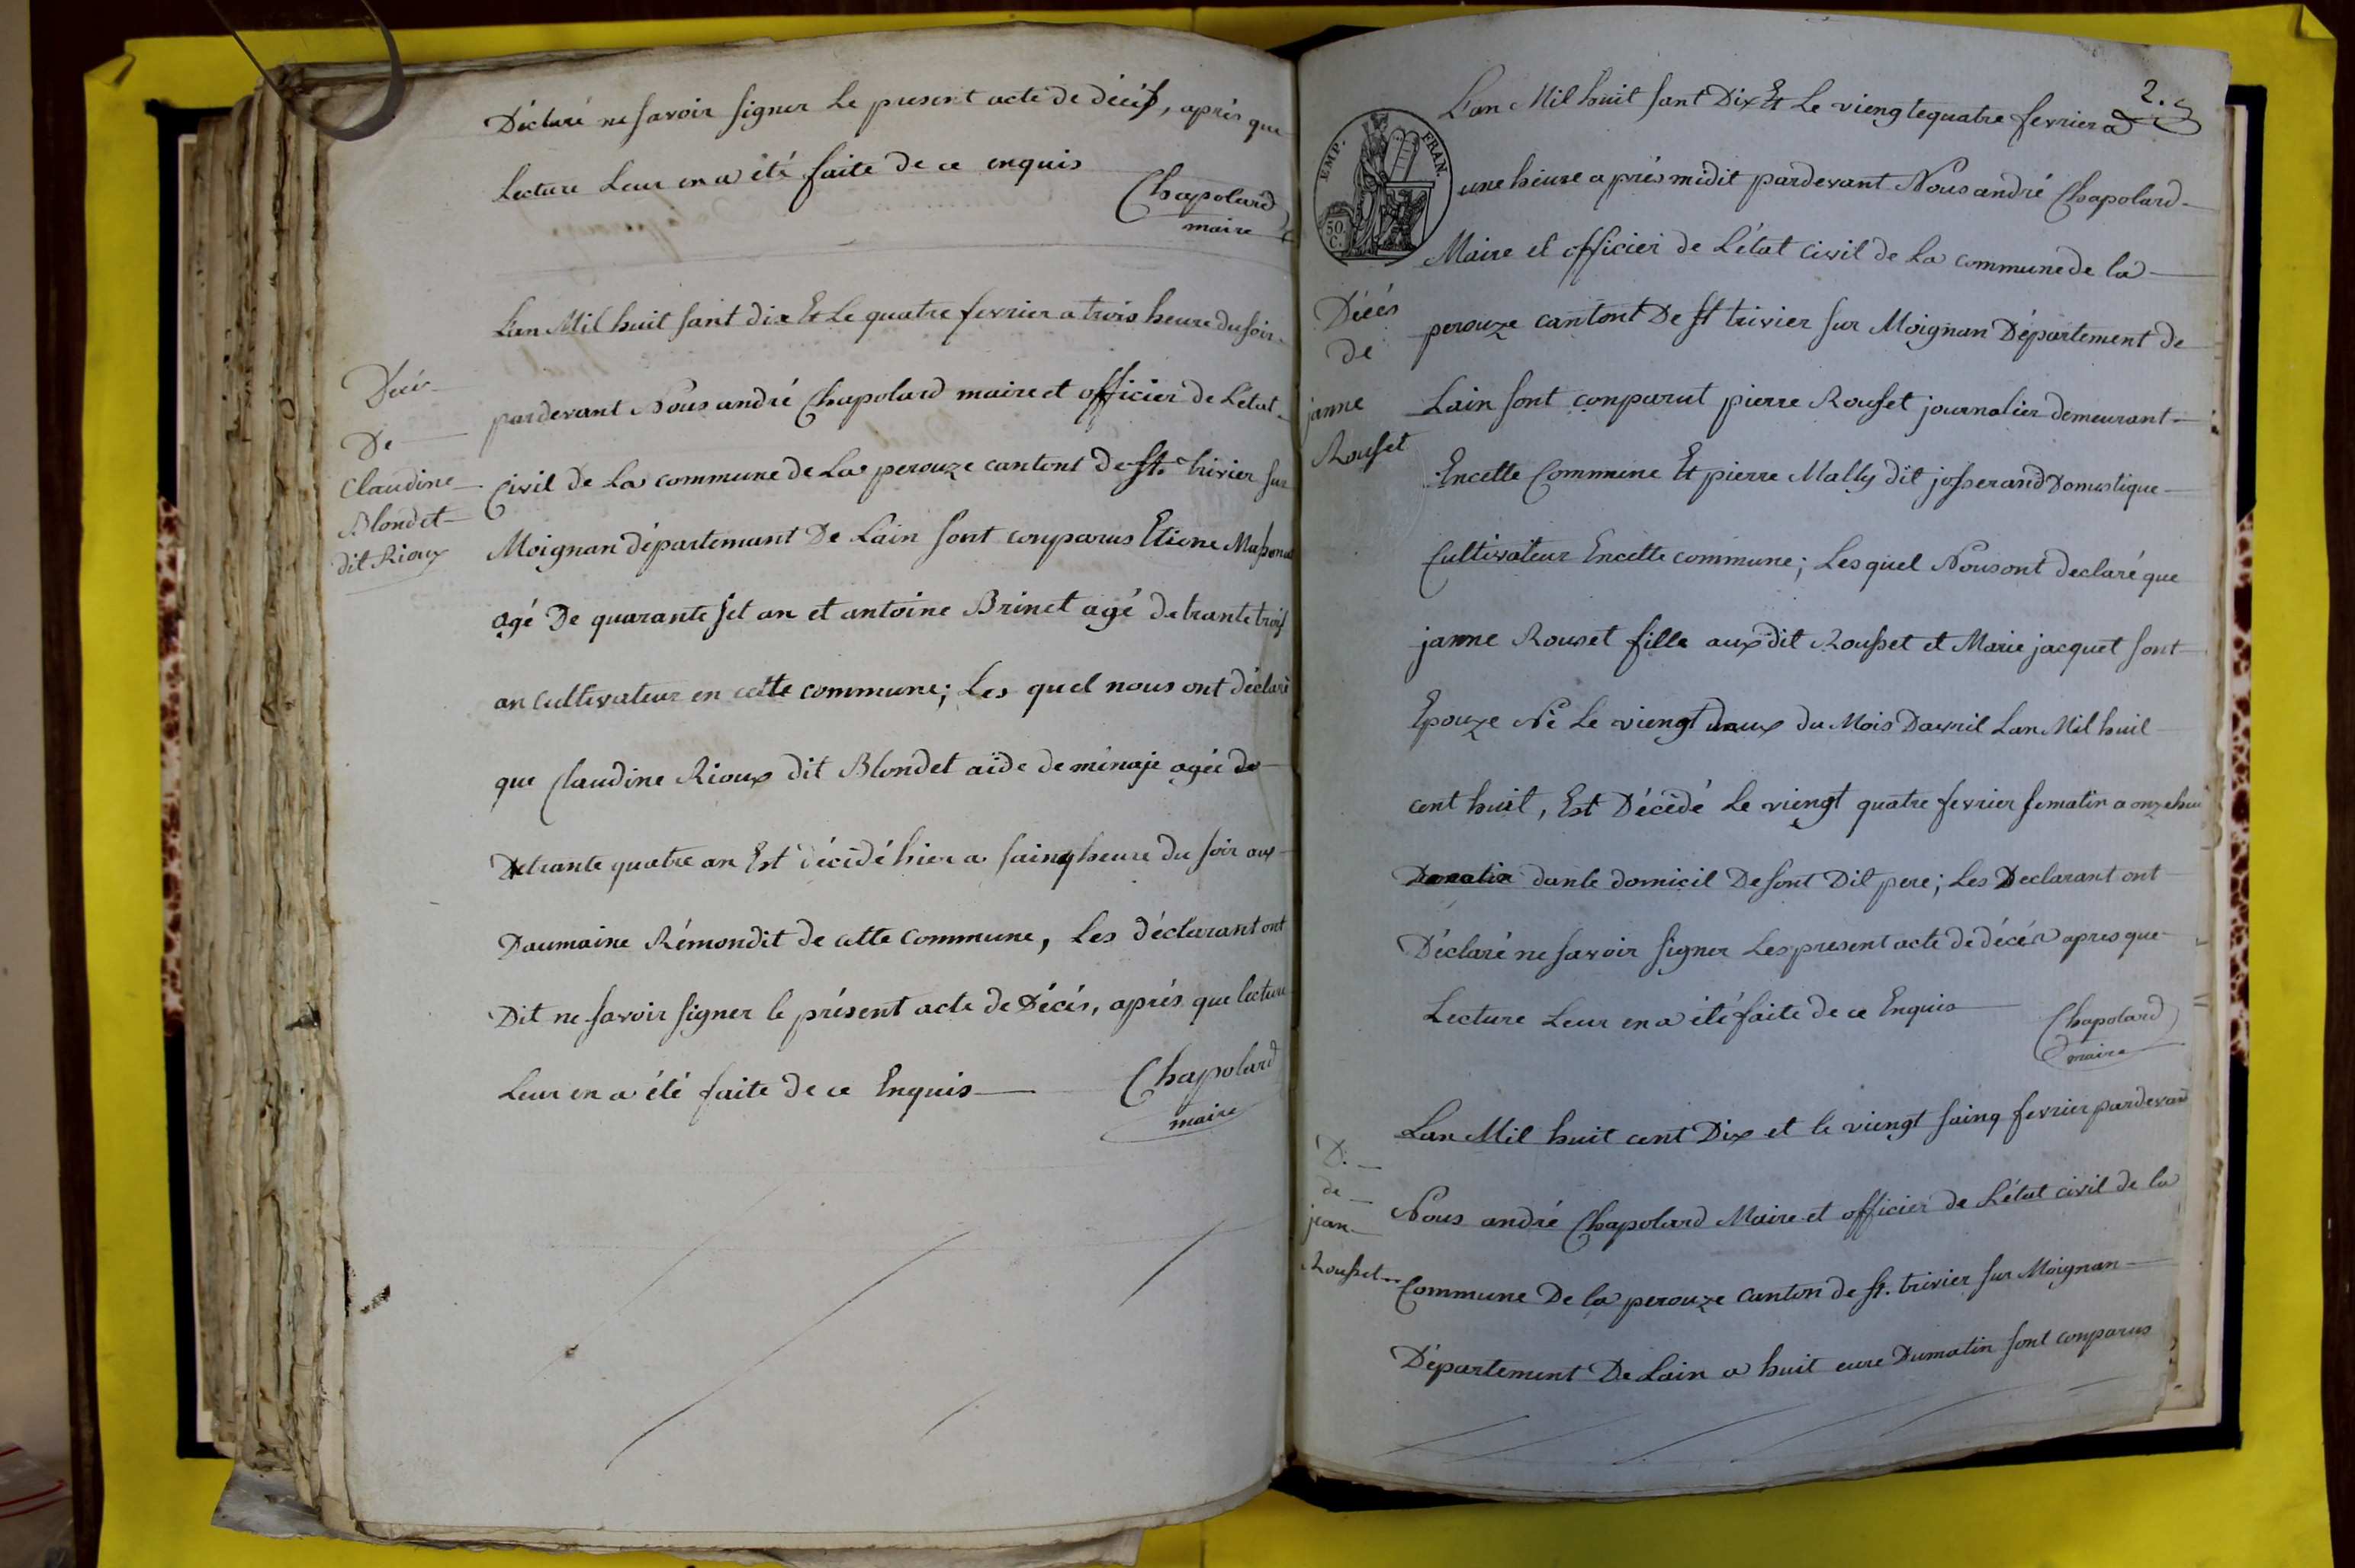 Déclaré ne savoir signer Le present acte de décés, aprés que
Lecture Leur en a été faite de ce enquis
Chapolard
maire
L'an Mil huit sant dix Et Le quatre fevrier a trois heure du soir
Décés
De
Claudine
Blondet
dit Rioux
pardevant Nous andré Chapolard maire et officier de L'état
Civil de La commune de La perouze cantont de St. trivier sur
Moignan départemant De Lain sont conparus Etiene
agé De quarante set an et antoine Brinet agé de trante trois
an Cultivateur en cette commune; Les quel nous ont déclaré
que Claudine Rioux dit Blondet aide de ménaje agée de
De trante quatre an Est décédé hier a sainq heure du soir aux
Daumaine Rémondit de cette Commune, Les déclarant ont
Dit ne savoir signer le présent acte de Décés, aprés que lecture
Leur en a été faite de ce Enquis
Chapolard
maire
2.
L'an Mil huit sant Dix Et Le viengtequatre fevrier a
EMP. FRAN.
50. C.
une heure aprés midit pardevant Nous andré Chapolard
Maire et officier de L'état civil de La commune de la
Décés
de
janne
Rousset
perouze cantont De St trivier sur Moignan Département de
Lain sont conparut pierre Rousset journalier demeurant
Encette Commune Et pierre Mally dit josserand Domestique
Cultivateur Encette commune; Lesquel Nous ont declaré que
janne Rouset fille aux dit Rousset et Marie jacquet sont
Epouze Né Le viengt deux du Mois Davril Lan Mil huit
cent huit, Est Décédé Le viengt quatre fevrier sematin a onze heu
Dematin danle domicil De sont Dit pere; Les Declarant ont
Déclaré ne savoir signer Les present acte de décés apres que
Lecture Leur en a été faite de ce Enquis
Chapolard
maire
Lan Mil huit cent Dix et le viengt sainq fevrier pardevand
D.
de
jean
Rousset
Nous andré Chapolard Maire et officier de L'état civil de la
Commune De la perouze canton de St. trivier sur Moignan
Département De Lain a huit eure Dumatin sont conparus